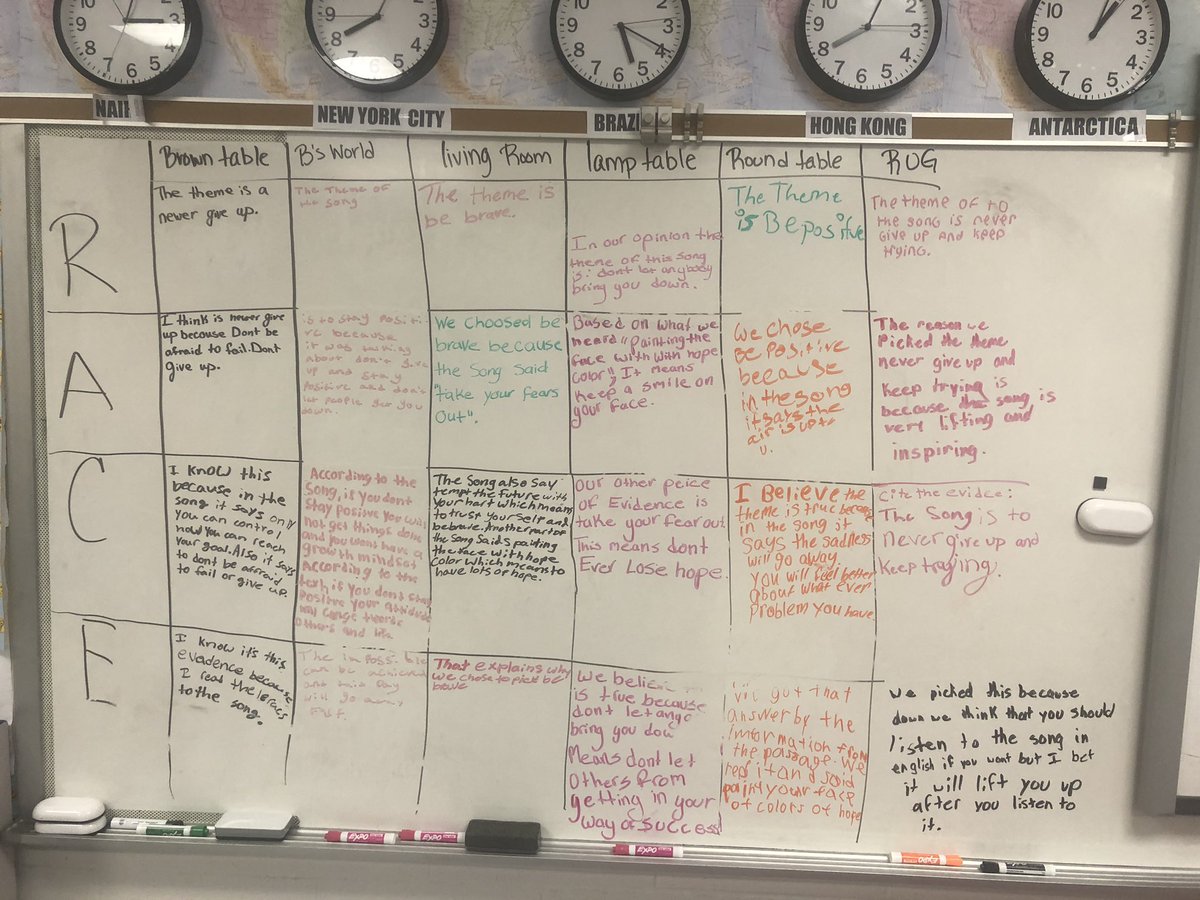 NAIE
NEW YORK CITY
BRAZI
HONG KONG
ANTARCTICA
Brown table
B's World
living Room
lamp table
Round table
RUG
R
The theme is a
never give up.
The Theme of
song
The theme is
be brave.
In our opinion the
theme of this song
is: dont let anybody
bring you down.
The Theme
is Be positive
The theme of to
the song is never
give up and keep
trying.
A
I think is never give
up because Dont be
afraid to fail. Dont
give up.
is to stay positi-
ve because
it was talking
about don't give
up and stay
Positive and don't
let people get you
down.
We choosed be
brave because
the Song Said
"take your fears
Out".
Based on what we
heard "Painting the
face with with hope
color", It means
keep a smile on
your face.
We chose
Be positive
because
in the song
it says the
air is up to
u.
The reason we
Picked the theme
never give up and
keep trying is
because the song is
very lifting and
inspiring.
C
I know this
because in the
song it says only
you can control
how you can reach
your goal. Also it says
to dont be affraid
to fail or give up.
According to the
Song, if you dont
stay positive you will
not get things done
and you wont have a
growth mindset
According to the
text if you dont stay
Positive your attitude
will
others and
The Song also say
tempt the future with
your hart which means
to trust yourself and
be brave. Another part of
the Song Said's painting
the face with hope
color which means to
have lots of hope.
our other peice
of Evidence is
take your fear out
This means dont
Ever Lose hope.
I Believe the
theme is true because
in the song it
says the sadness
will go away.
you will feel better
about what ever
Problem you have
Cite the evidce:
The Song is to
Never give up and
Keep traying.
E
I know it's this
evadence because
I read the leracs
to the song.
The imposs. ble
can be achieved
and this Day
will go away
Fast.
That explains why
we chose to pick be
brave
We believe
is true because
dont let
bring you dow
Means dont let
Others from
getting in your
way of success
got that
answer by the
information from
the passage. We
read it and said
paint your face
of colors of hope
We picked this because
down we think that you should
listen to the song in
english if you want but I bet
it will lift you up
after you listen to
it.
EXPO
EXPO
EXPO
EXPO